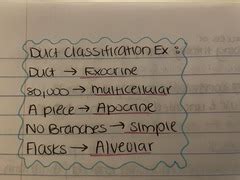 Duct Classification Ex:
Duct → Exocrine
80,000 → multicellular
A piece → Apocrine
No Branches → simple
Flasks → Alveolar